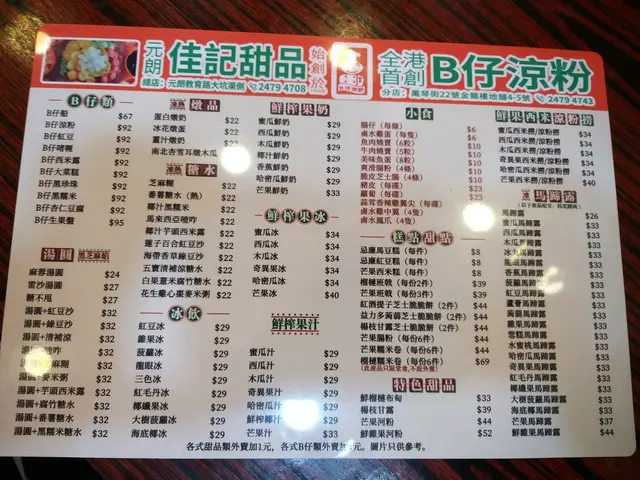 元朗 佳記甜品 始創於
總店：元朗教育路大坑渠側 2479 4708
全港首創 B仔涼粉
分店：鳳琴街22號金龍樓地舖4-5號 2479 4743
B仔類
B仔船 $67
B仔涼粉 $92
B仔紅豆 $92
B仔啫喱 $92
B仔西米露 $92
B仔大菜糕 $92
B仔黑珍珠 $92
B仔黑糯米 $92
B仔杏仁豆腐 $92
B仔生果盤 $95
湯圓 黑芝麻餡
麻蓉湯圓 $24
雷沙湯圓 $27
糖不甩 $27
湯圓+紅豆沙 $32
湯圓+綠豆沙 $32
湯圓+清補涼 $32
湯圓+喳咋 $32
湯圓+芝麻糊 $32
湯圓+麥粥 $32
湯圓+芋頭西米露 $32
湯圓+腐竹糖水 $32
湯圓+番薯糖水 $32
湯圓+黑糯米糖水 $32
凍熱 燉品
蛋白燉奶 $22
冰花燉蛋 $22
薑汁燉奶 $22
南北杏雪耳燉木瓜 $29
凍熱 糖水
芝麻糊 $22
番薯糖水（熱） $22
椰汁黑糯米 $22
馬來西亞喳咋 $22
椰汁芋頭西米露 $22
蓮子百合紅豆沙 $22
海帶香草綠豆沙 $22
五寶清補涼糖水 $22
白果薏米腐竹糖水 $22
花生雞心棗麥米粥 $22
冰飲
紅豆冰 $29
雜果冰 $29
菠蘿冰 $29
龍眼冰 $29
三色冰 $29
紅毛丹冰 $29
椰纖果冰 $29
大樹菠蘿冰 $29
海底椰冰 $29
鮮榨果奶
蜜瓜鮮奶 $29
西瓜鮮奶 $29
木瓜鮮奶 $29
椰汁鮮奶 $29
香蕉鮮奶 $29
哈密瓜鮮奶 $29
芒果鮮奶 $33
鮮榨果冰
蜜瓜冰 $34
西瓜冰 $34
木瓜冰 $34
奇異果冰 $34
哈密瓜冰 $34
芒果冰 $40
鮮榨果汁
蜜瓜汁 $29
西瓜汁 $29
木瓜汁 $29
奇異果汁 $29
哈密瓜汁 $29
鮮椰汁 $29
芒果汁 $33
小食
腸仔（每條） $6
鹵水雞蛋（每隻） $6
魚肉燒賣（6粒） $10
牛肉燒賣（5粒） $10
美味魚蛋（8粒） $10
爽滑腸粉（4條）
脆皮芝士腸（4條）
豬皮（每碟）
蘿蔔（每碟）
蒜茸香辣雞翼尖（每碟）
鹵水雞中翼（4隻）
鹵水鳳爪（4隻）
糕點甜點
忌廉馬豆糕（每件） $8
忌廉紅豆糕（每件） $8
芒果西米糕（每件） $8
榴槤班戟（每份2件） $39
芒果班戟（每份2件） $39
紅酒提子芝士脆脆餅（2件） $44
益力多蒟蒻芝士脆脆餅（2件） $44
楊枝甘露芝士脆脆餅（2件） $44
芒果腸粉（每份6件） $44
芒果糯米卷（每份6件） $44
榴槤糯米卷（每份6件） $69
(此產品只限堂食，不設外賣)
特色甜品
鮮榴槤布甸 $33
楊枝甘露 $39
芒果河粉 $44
鮮雜果河粉 $52
鮮果西米涼粉撈
蜜瓜西米撈/涼粉撈 $34
西瓜西米撈/涼粉撈 $34
木瓜西米撈/涼粉撈 $34
奇異果西米撈/涼粉撈 $34
哈密瓜西米撈/涼粉撈 $34
芒果西米撈/涼粉撈 $40
凍 馬蹄露
馬蹄露 $26
蜜瓜馬蹄露 $33
西瓜馬蹄露 $33
木瓜馬蹄露 $33
龍眼馬蹄露 $33
香蕉馬蹄露 $33
菠蘿馬蹄露 $33
紅豆馬蹄露 $33
蘆薈馬蹄露 $33
蒟蒻馬蹄露 $33
雜果馬蹄露 $33
雪糕馬蹄露 $33
水蜜桃馬蹄露 $33
哈密瓜馬蹄露 $33
奇異果馬蹄露 $33
紅毛丹馬蹄露 $33
椰纖果馬蹄露 $33
大樹菠蘿馬蹄露 $33
海底椰馬蹄露 $33
芒果馬蹄露 $37
鮮雜果馬蹄露 $44
各式甜品類外賣加1元，各式B仔類外賣加 元。圖片只供參考。